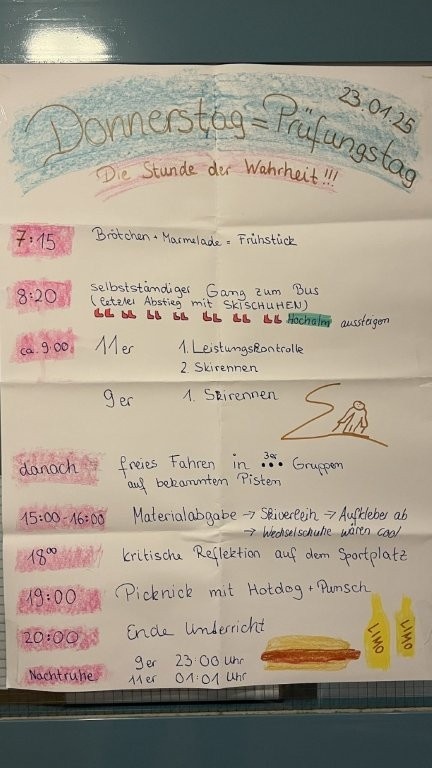 23.01.25
Donnerstag = Prüfungstag
Die Stunde der Wahrheit!!!
7:15 Brötchen + Marmelade = Frühstück
8:20 selbstständiger Gang zum Bus
(letzter Abstieg mit SKISCHUHEN)
Hochalm aussteigen
ca. 9:00 11er 1. Leistungskontrolle
2 Skirennen
9er 1. Skirennen
danach freies Fahren in 3er Gruppen
auf bekannten Pisten
15:00-16:00 Materialabgabe → Skiverleih → Aufkleber ab
→ Wechselschuhe wären cool
18⁰⁰ kritische Reflektion auf dem Sportplatz
19:00 Picknick mit Hotdog + Punsch
20:00 Ende Unterricht
LIMO LIMO
9er 23:00 Uhr
Nachtruhe 11er 01:01 Uhr